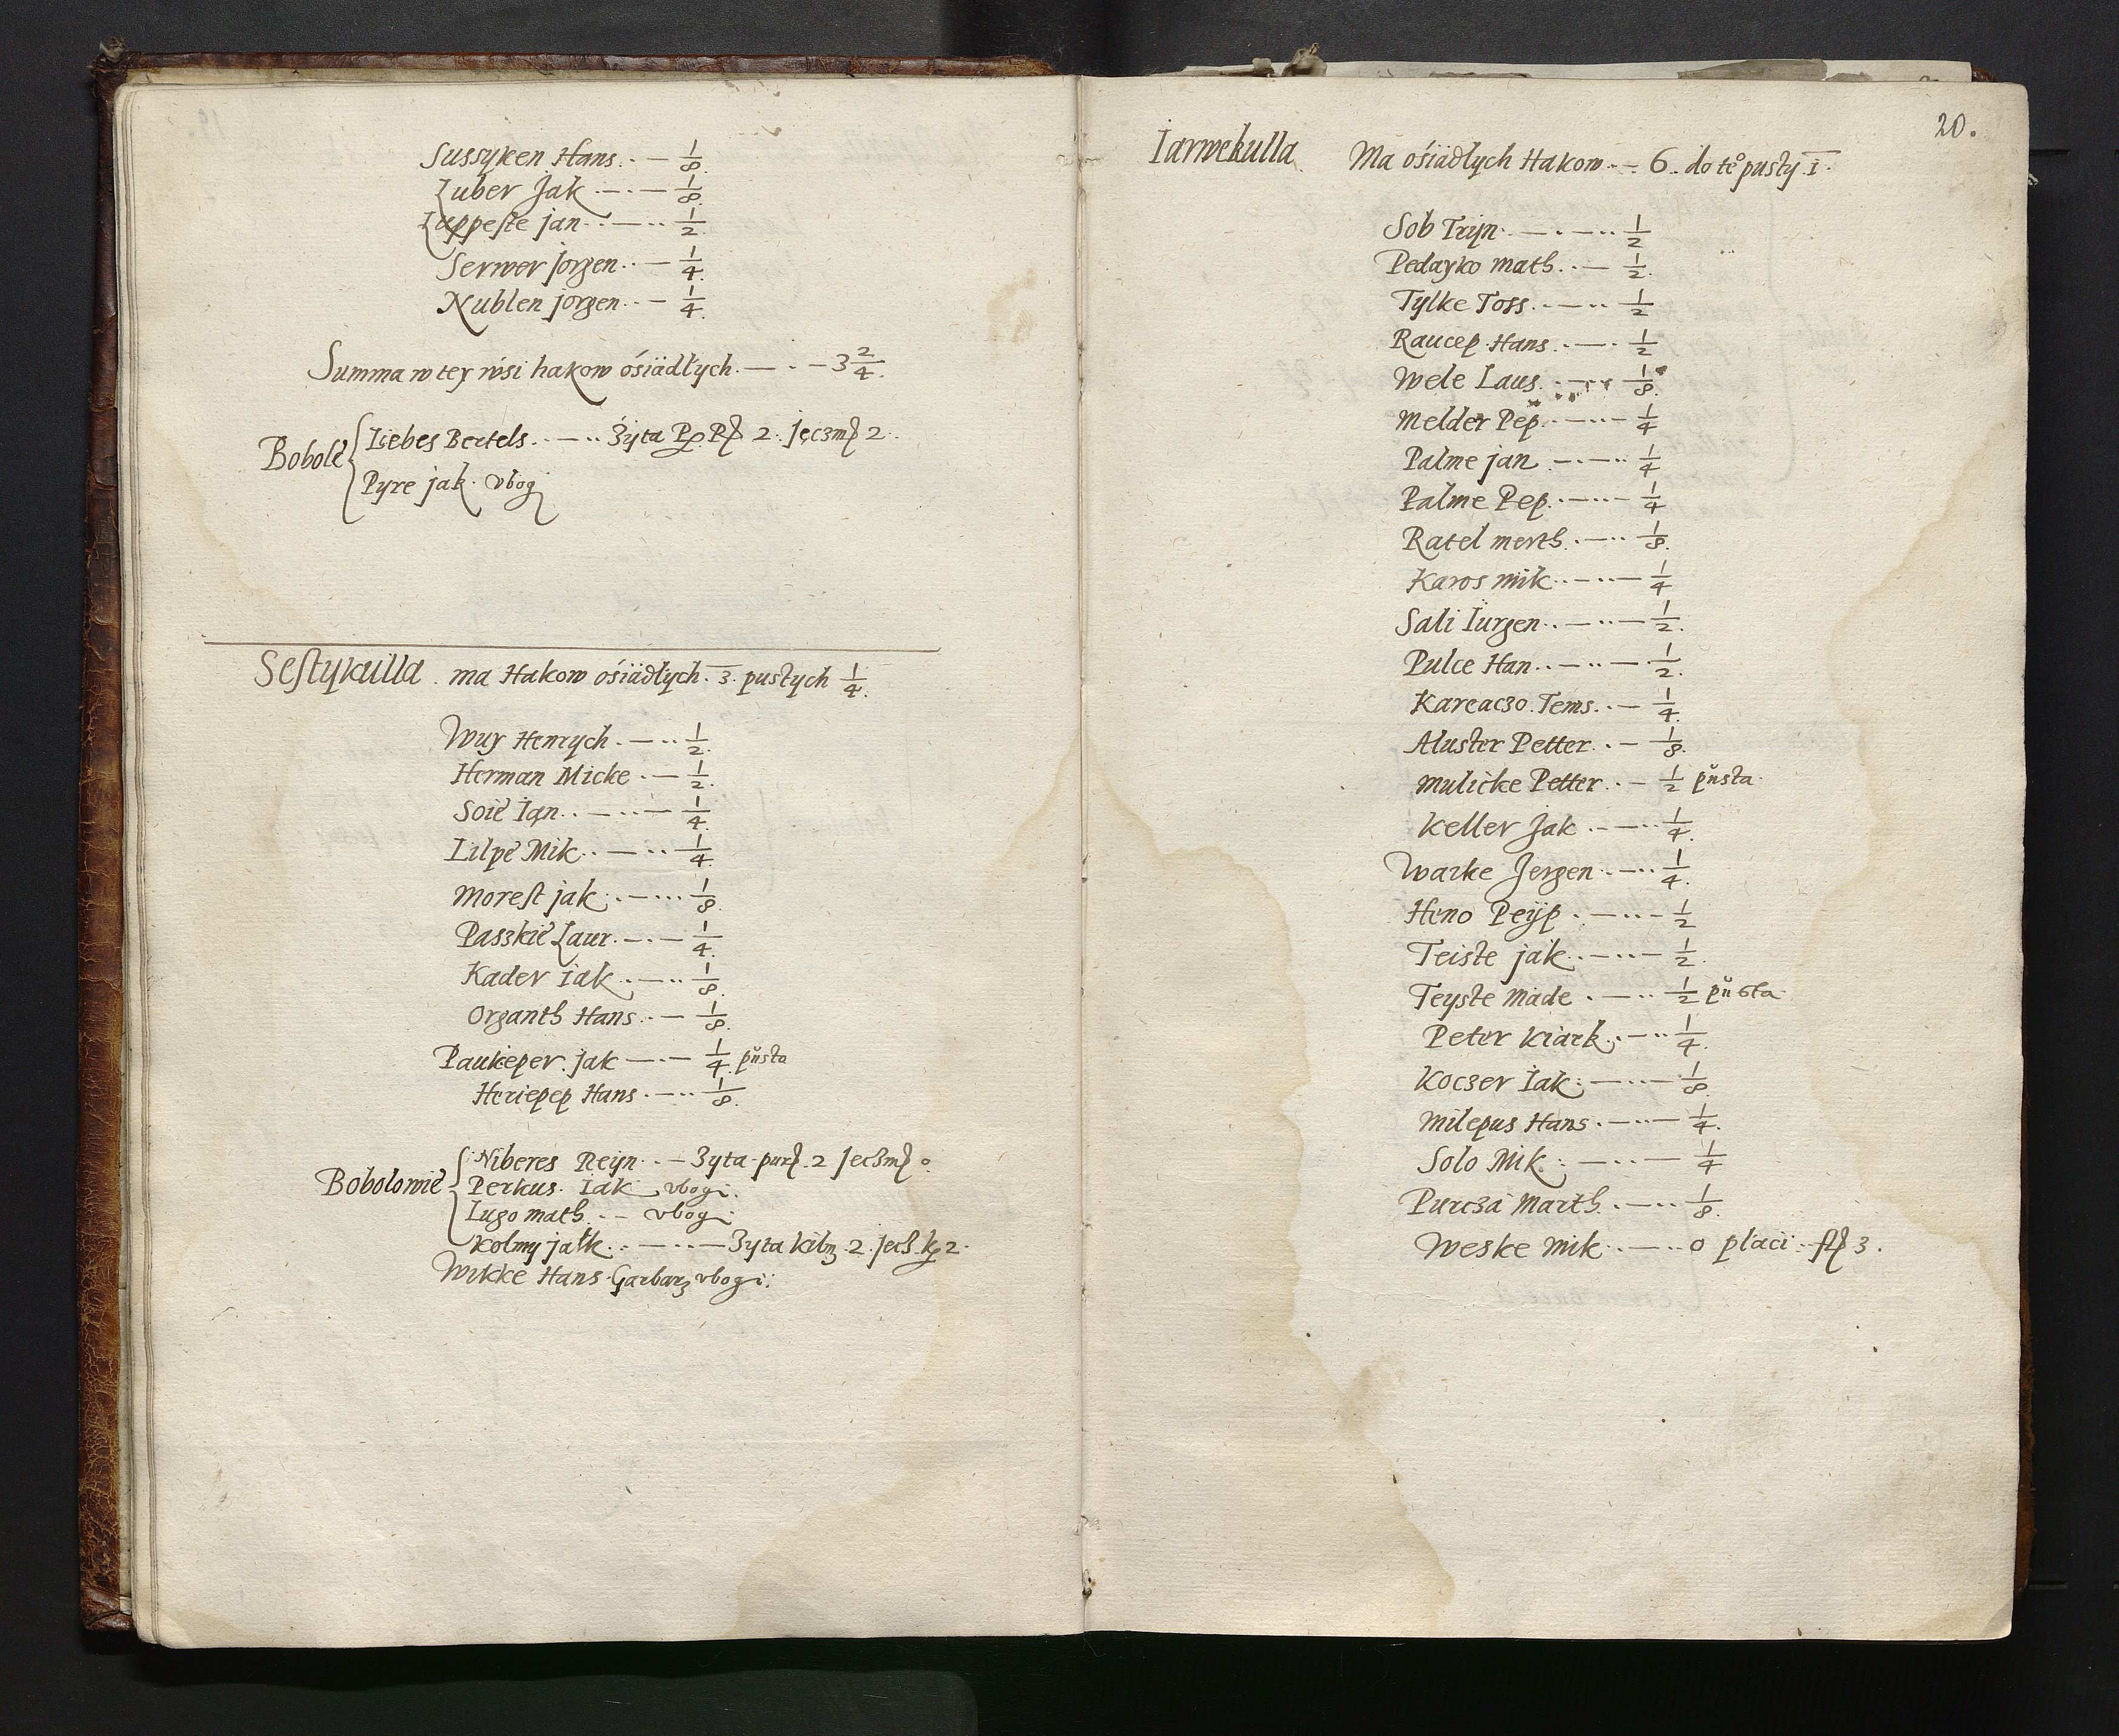 Sussyken Hans. . — 1/8.
Luber Jak — . — 1/8.
Luppeste jan . . — . . 1/2.
Serwer jorgen . . — 1/4.
Nublen jorgen . . — 1/4.
Summa w tey wsi hakow ośiadłych. — . . — 3 2/4.
Bobole
Liebes Bertels. . — . . Żyta 2. Jęczm 2.
Pyre jak. vbogi
Sestykulla. ma Hakow ośiadłych. 3. pustych 1/4.
Wuy Henrych . — . . 1/2.
Herman Micke . . — 1/2.
Soie Ian . . — . . — 1/4.
Lilpe Mik . . — . . 1/4.
Morest jak . . — . . . 1/8.
Paszkie Laur. — . — 1/4.
Kader iak . . — . . 1/8.
Organth Hans . . — 1/8.
Paukeper. jak — . — 1/4. pusta
Heriepep Hans . — . . 1/8.
Bobolowie
Niberes Reyn . . — Zyta pur. 2 Jeczm 0.
Perkus. Iak vbogi.
Lugo math . . — vbogi
Kolmy jak . . — . . — Zyta kilm. 2. jecz. k 2.
Wikke Hans. Garbarz vbogi:
20.
Iarwekulla Ma ośiadłych Hakow . . — 6. do te° pusty 1.
Sob Trijn . — . — . . 1/2
Pedayko math . . — 1/2.
Tylke Toss . . — . . 1/2
Raucep Hans . . — . 1/2
Wele Laus . . — . . 1/8.
Melder Pep . . — . . — 1/4
Palme jan . — . — . . 1/4
Palme Pep . . — . . — 1/4
Ratel merth . . — . . 1/8.
Karos mik . . — . . — 1/4
Sali Iurgen . . — . . — 1/2.
Pulce Han . . — . . — . 1/2.
Kareaczo. Tems . . — 1/4.
Aluster Petter . . — 1/8.
Mulicke Petter . . — 1/2 pusta.
Keller Jak . . — . . 1/4.
Warke Jergen . . — . . 1/4.
Heno Peijp . . — . . — 1/2
Teiste jak . . — . . — 1/2.
Teyste Made . . — . . 1/2 pusta.
Peter Kiark . . — . . 1/4.
Koczer Iak . . — . . — 1/8.
Milepus Hans . — . . — 1/4.
Solo Mik . . — . . — 1/4
Purcza Marth . . — . . 1/8.
Weske Mik . . — . . 0 płaci fl 3.